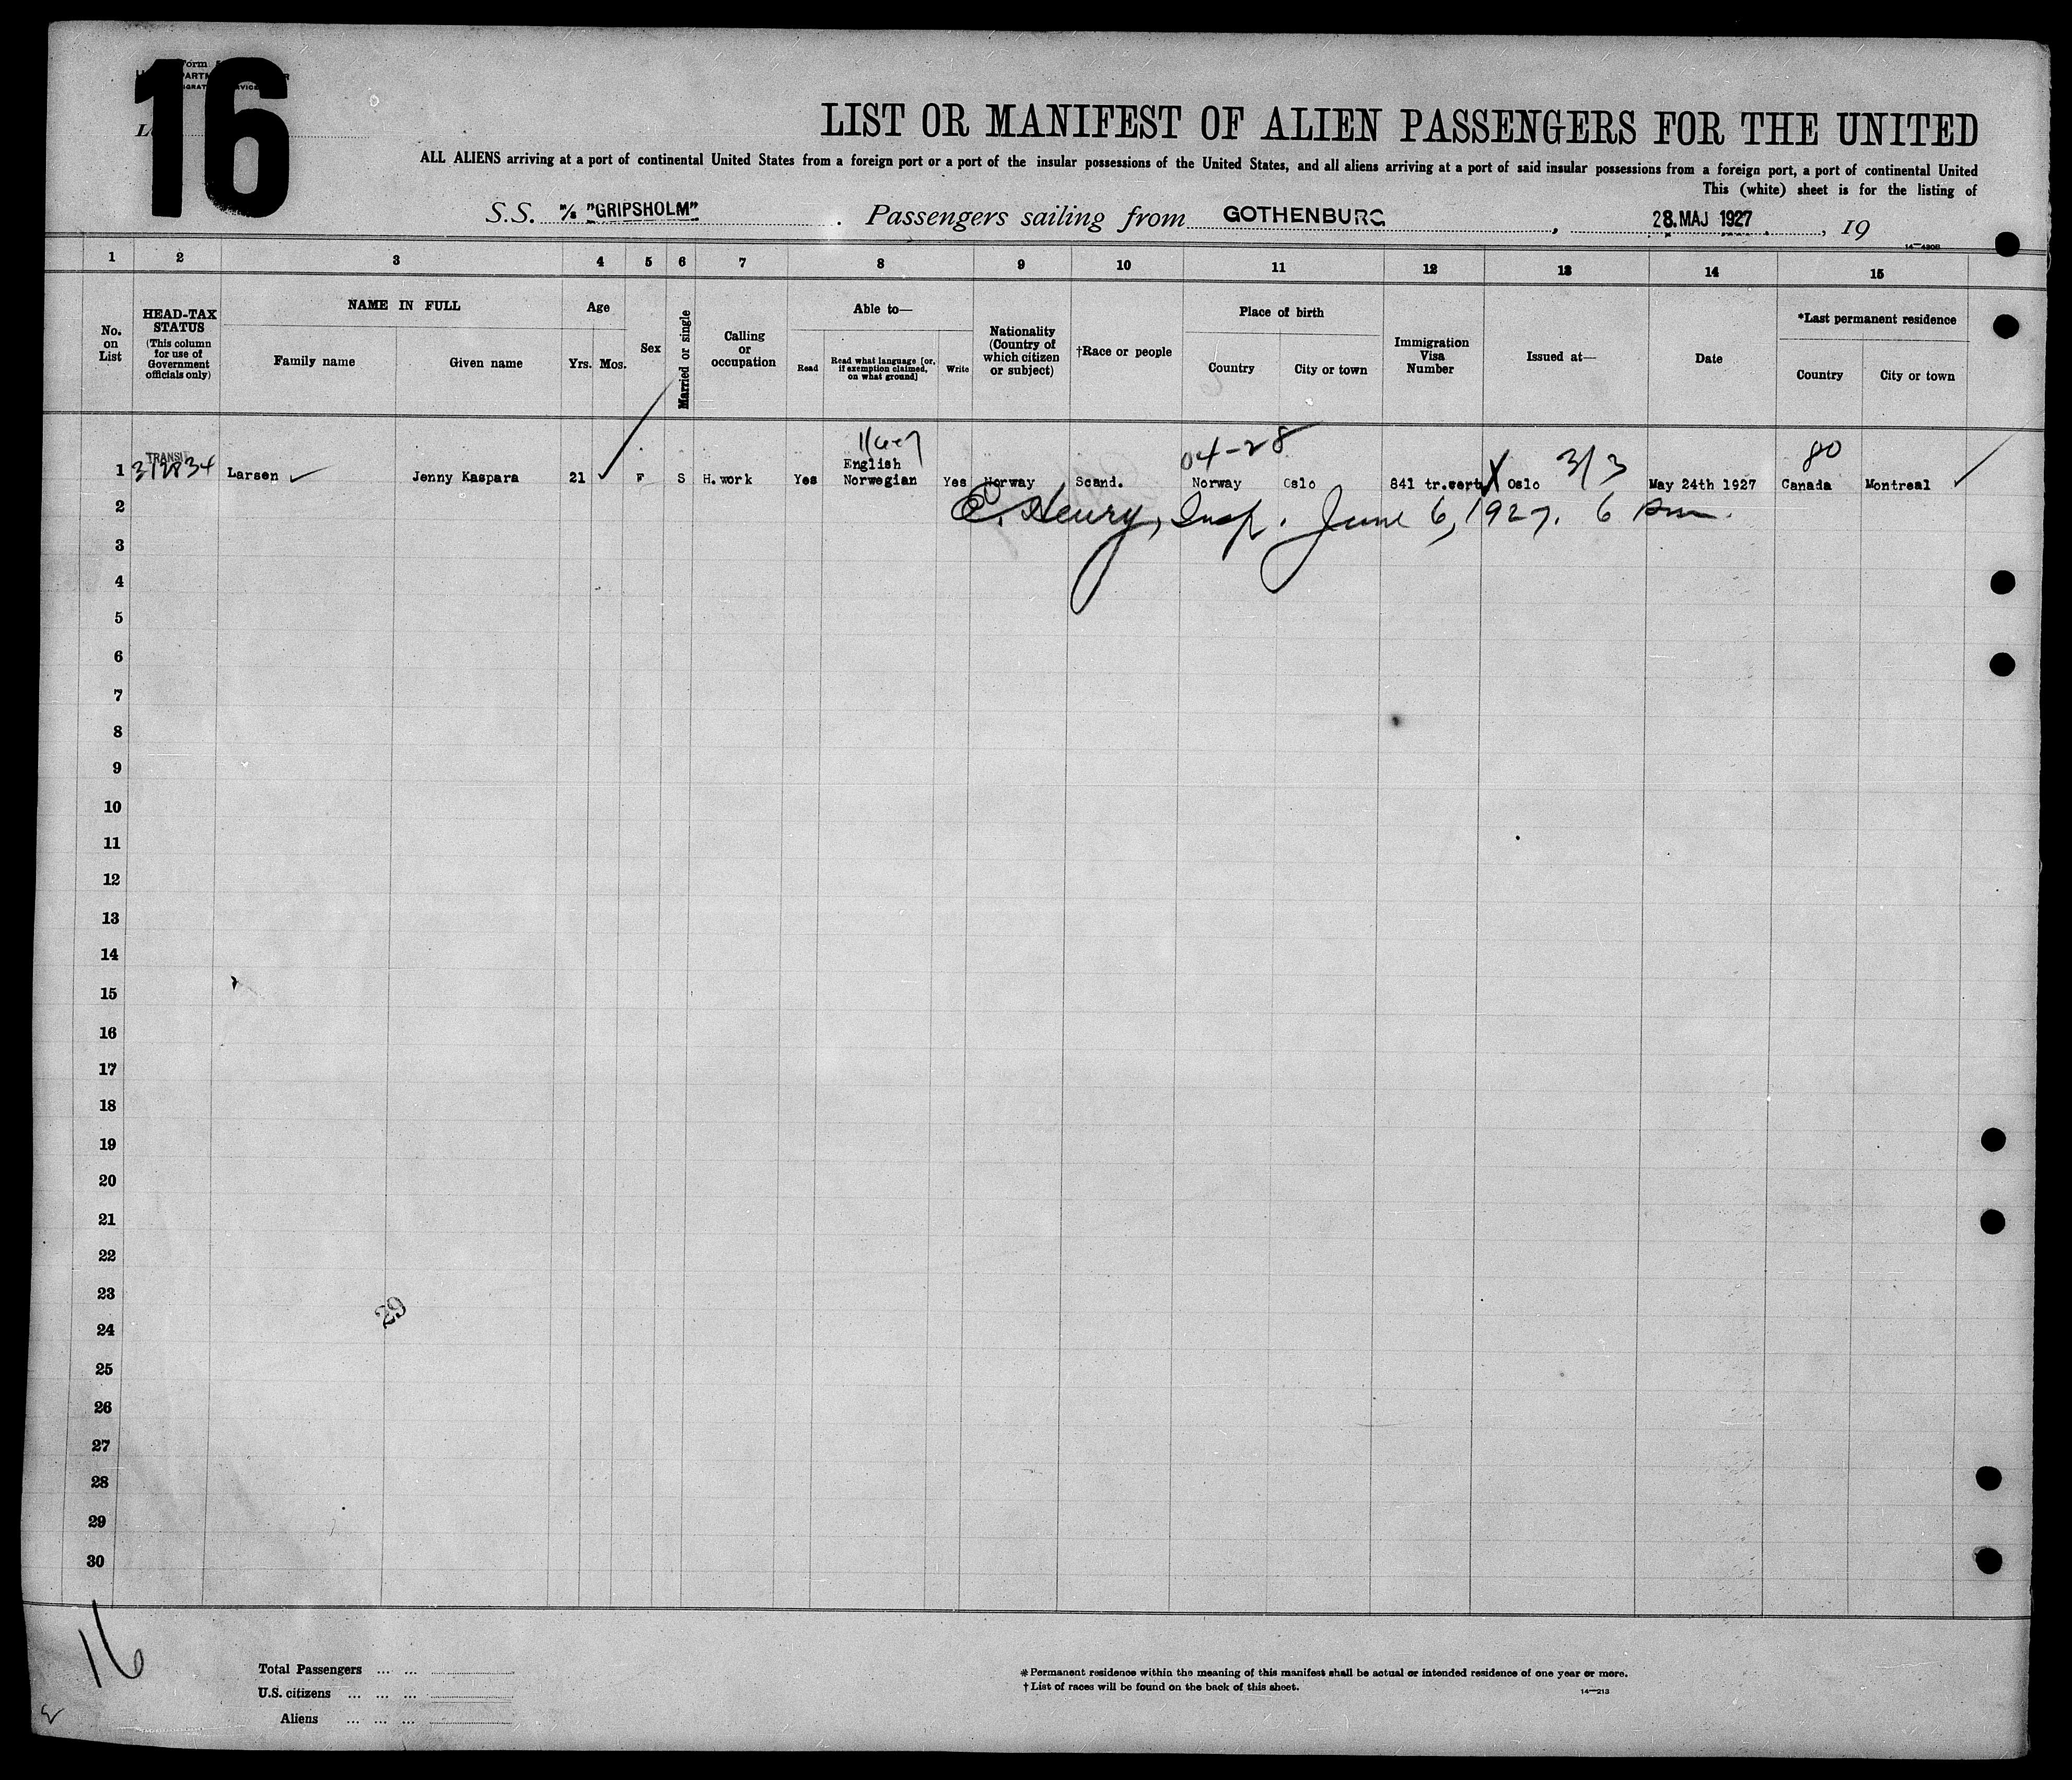 16
Form
LIST OR MANIFEST OF ALIEN PASSENGERS FOR THE UNITED
ALL ALIENS arriving at a port of continental United States from a foreign port or a port of the insular possessions of the United States, and all aliens arriving at a port of said insular possessions from a foreign port, a port of continental United
This (white) sheet is for the listing of
S.S. M/S "GRIPSHOLM". Passengers sailing from GOTHENBURG, 28. MAJ 1927, 19
14—4306
1 2 3 4 5 6 7 8 9 10 11 12 13 14 15
No. on List
HEAD-TAX STATUS (This column for use of Government officials only)
NAME IN FULL
Family name Given name
Age
Yrs. Mos.
Sex
Married or single
Calling or occupation
Able to—
Read Read what language [or, if exemption claimed, on what ground] Write
Nationality (Country of which citizen or subject)
†Race or people
Place of birth
Country City or town
Immigration Visa Number
Issued at—
Date
*Last permanent residence
Country City or town
TRANSIT
04-28 3/3 80
1 312834 Larsen Jenny Kaspara 21 F S H.work Yes English Norwegian Yes Norway Scand. Norway Oslo 841 tr.cert. X Oslo May 24th 1927 Canada Montreal
2 C. Henry, Insp. June 6, 1927. 6 Pm.
3
4
5
6
7
8
9
10
11
12
13
14
15
16
17
18
19
20
21
22
23
29
24
25
26
27
28
29
30
16
Total Passengers ... ...
U.S. citizens ... ... ...
Aliens ... ... ...
* Permanent residence within the meaning of this manifest shall be actual or intended residence of one year or more.
† List of races will be found on the back of this sheet.
14—213